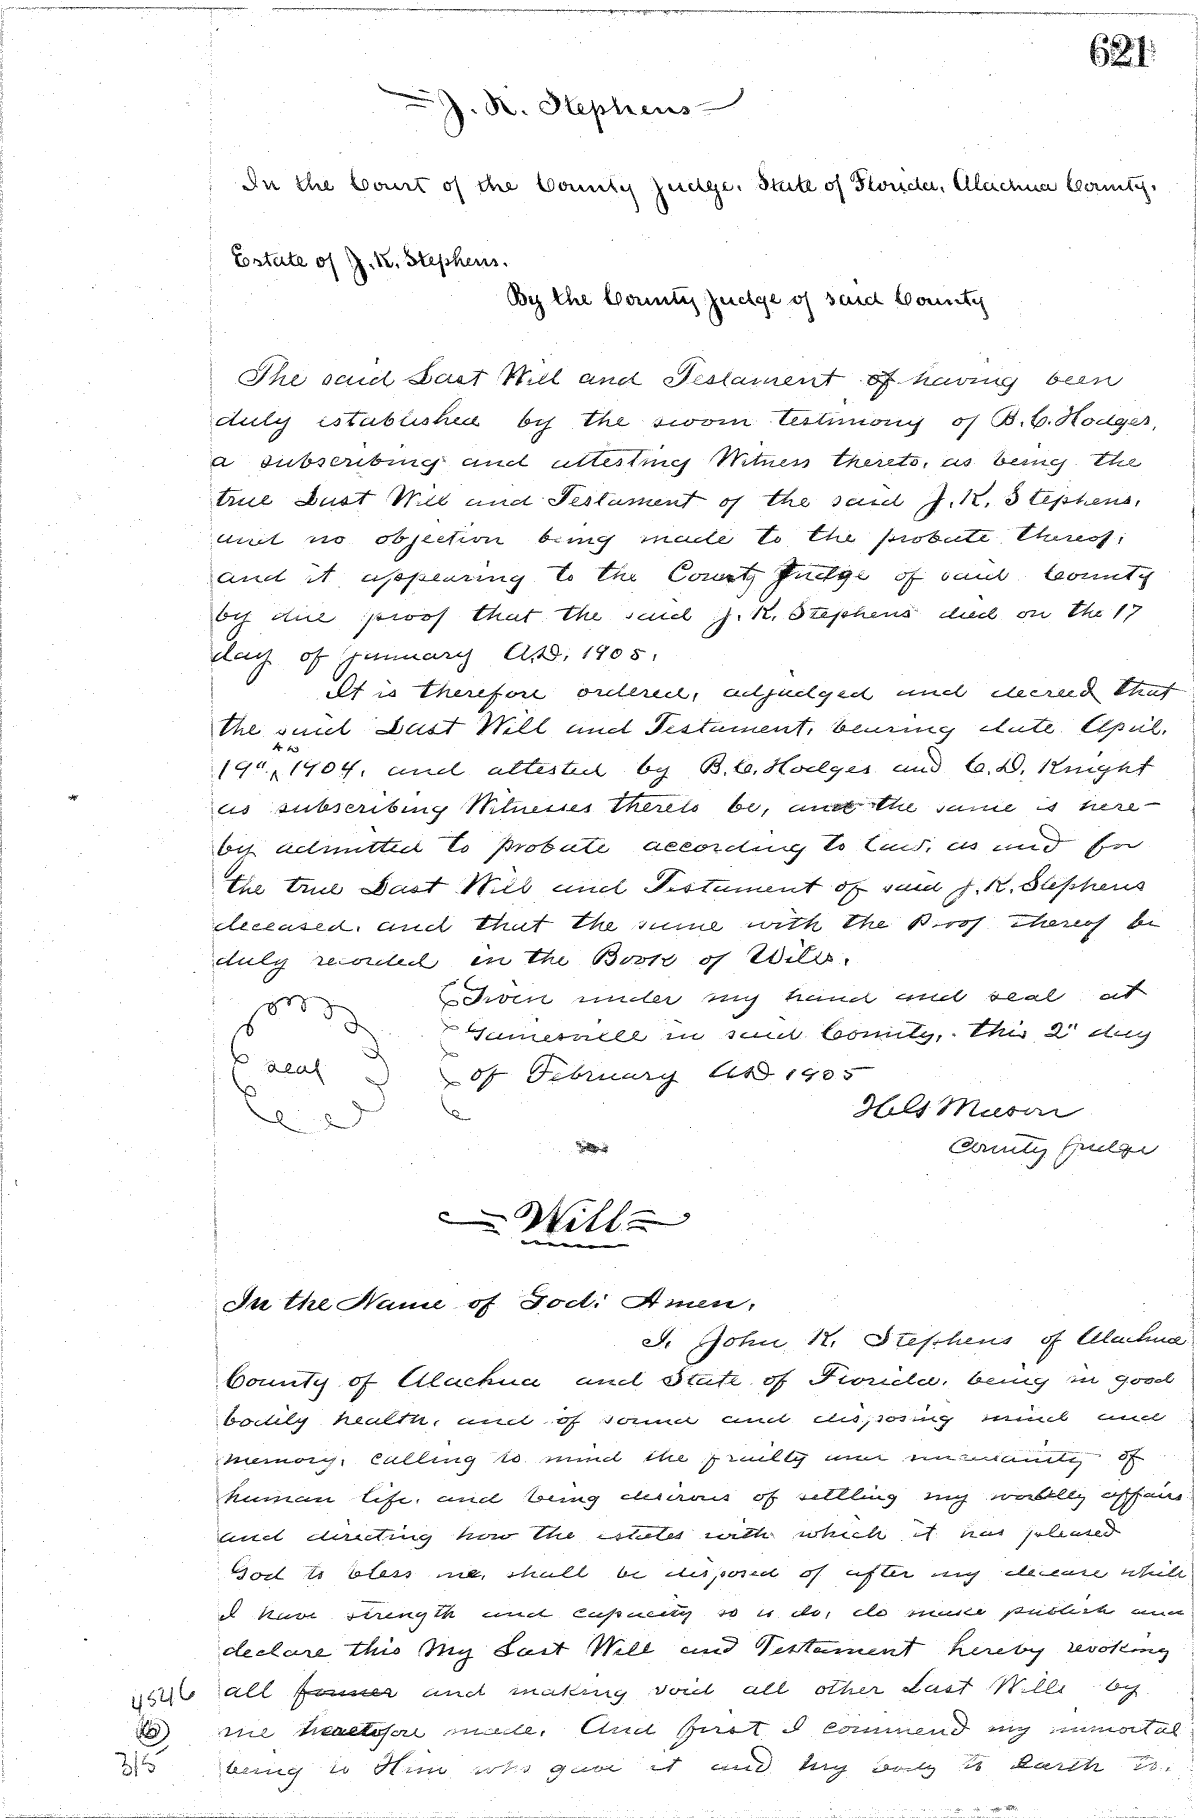 621
J. K. Stephens
In the Court of the County Judge. State of Florida, Alachua County.
Estate of J. K. Stephens.
By the County Judge of said County
The said Last Will and Testament of having been
duly established by the sworn testimony of B. C. Hodges,
a subscribing and attesting Witness thereto, as being the
true Last Will and Testament of the said J. K. Stephens,
and no objection being made to the probate thereof;
and it appearing to the County Judge of said County
by due proof that the said J. K. Stephens died on the 17
day of January A.D. 1905.
It is therefore ordered, adjudged and decreed that
the said Last Will and Testament, bearing date April.
19" AD 1904. and attested by B. C. Hodges and C. D. Knight
as subscribing Witnesses thereto be, and the same is here-
by admitted to probate according to law, as and for
the true Last Will and Testament of said J. K. Stephens
deceased. and that the same with the Proof thereof be
duly recorded in the Book of Wills.
Given under my hand and seal at
Gainesville in said County, this 2" day
seal
of February AD 1905
Mason
County Judge
Will
In the Name of God: Amen.
I, John K. Stephens of Alachua
County of Alachua and State of Florida, being in good
bodily health, and of sound and disposing mind and
memory, calling to mind the frailty and uncertainity of
human life, and being desirous of settling my worldly affairs
and directing how the estates with which it has pleased
God to bless me, shall be disposed of after my decease while
I have strength and capacity so to do, do make publish and
declare this My Last Will and Testament hereby revoking
4546 all former and making void all other Last Wills by
me heretofore made. And first I commend my immortal
315 being to Him who gave it and my body to Earth to.